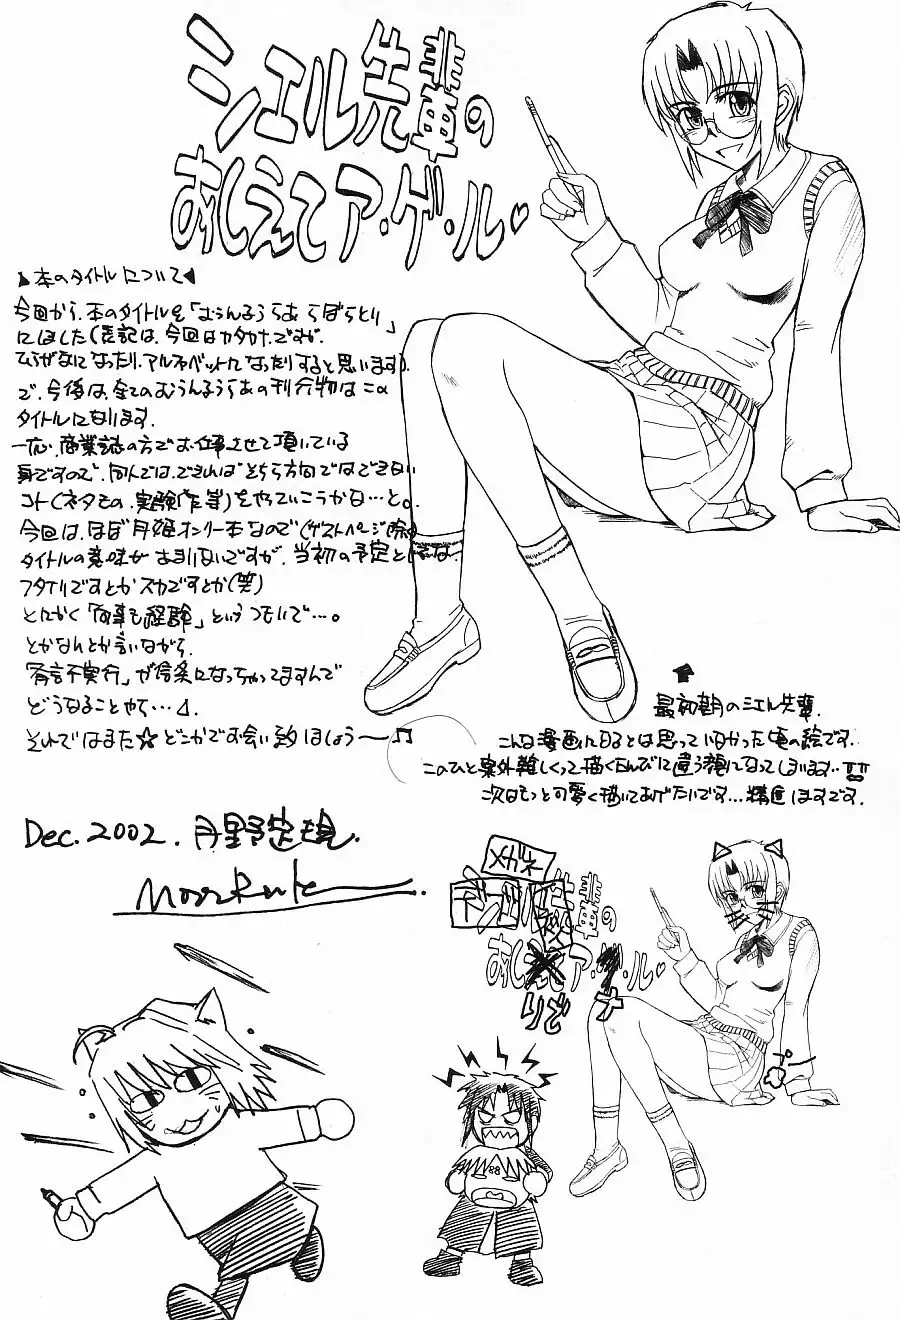 シエル先輩の
おしえてア・ゲ・ル♡
▲本のタイトルについて◀
今回から、本のタイトルを「むうんるうらあ らぼらとり」
にしました(表記は、今回はカタカナですが、
ひらがなになったり、アルファベットになったりすると思います)。
で、今後は、全てのむうんるうらあの刊行物はこの
タイトルになります。
一応、商業誌の方でお仕事させて頂いている
身ですので、同人では、できればそちら方向ではできない
コト(ネタもの、実験作等)をやっていこうかな…と。
今回は、ほぼ月姫オンリー本なので(ゲストページ除く)
タイトルの意味があまりないですが、当初の予定としては、
フタナリですとかスカですとか(笑)
とにかく「何事も経験」というつもりで…。
とかなんとか言いながら、
「有言不実行」が信条になっちゃってますんで
どうなることやら…
それではまた☆どこかでお会い致しましょう〜♫
Dec. 2002. 月野定規.
最初期のシエル先輩.
こんな漫画になるとは思っていなかった頃の絵です.
このひと案外難しくって描くたんびに違う顔になってしまいます…!!
次はもっと可愛く描いてあげたいです…精進しますです.
メガネ
デ
輩の
おし
ア・
・ル♡
ナ
りぞ
プー
88